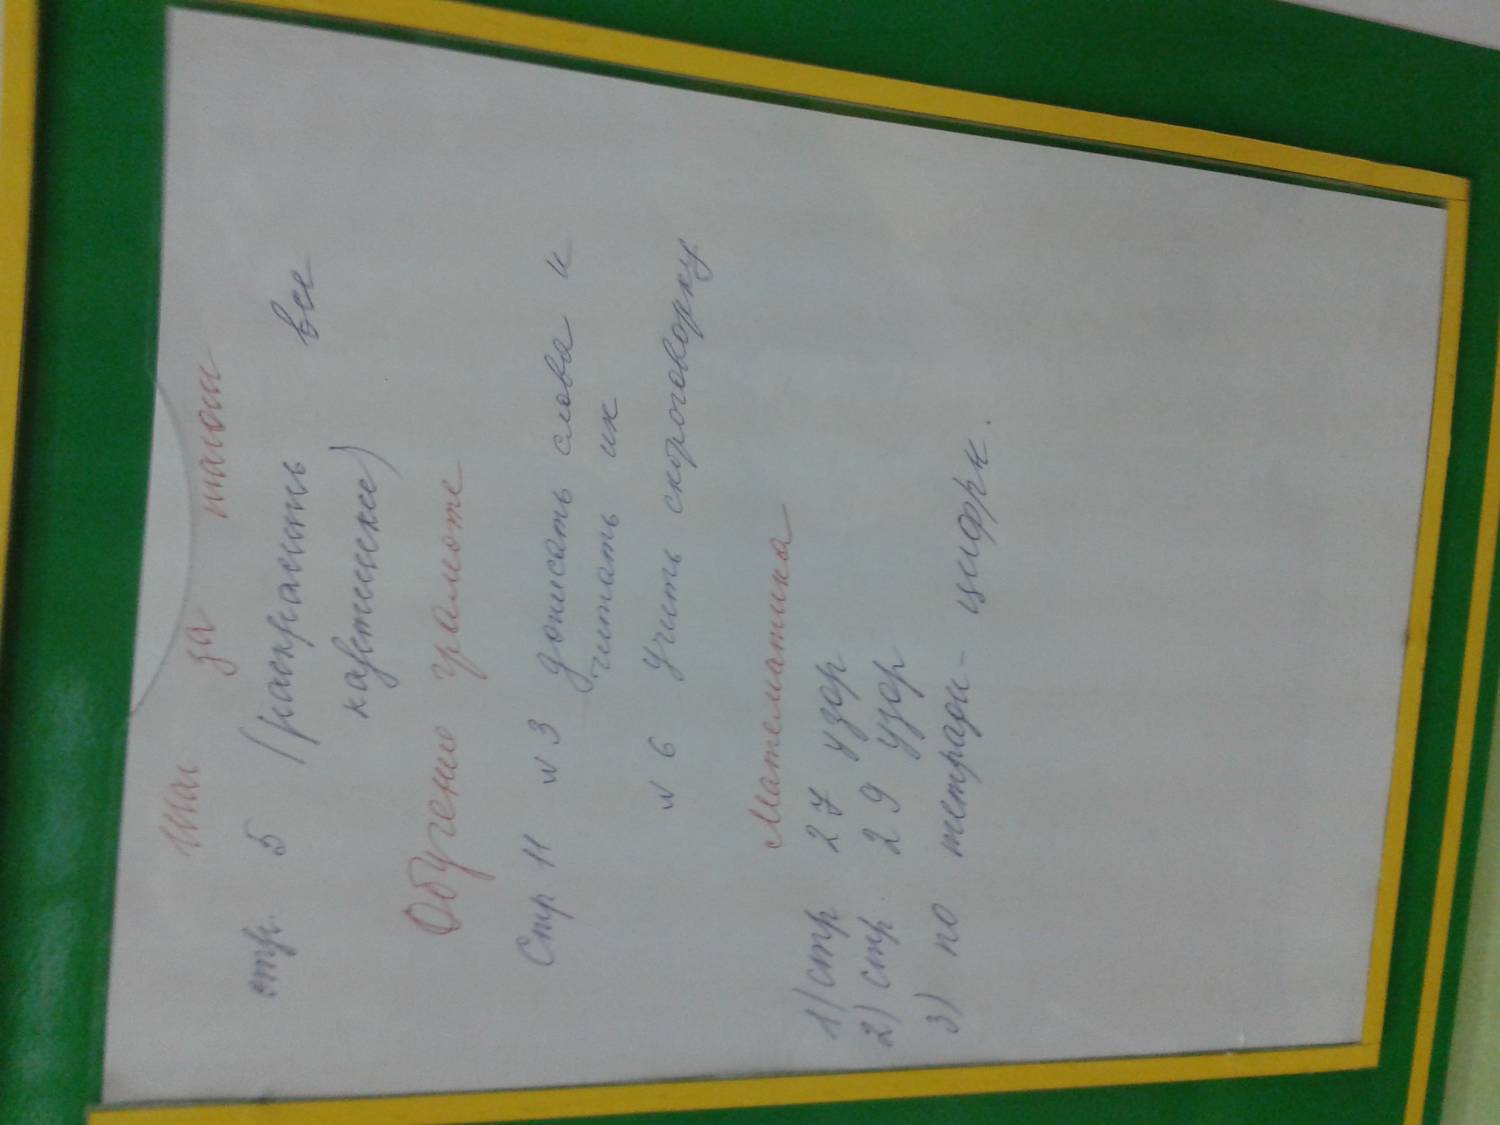 Шаг за шагом
стр. 5 (раскрасить все
картинки)
Обучение грамоте
Стр 11 № 3 дописать слова и
читать их
№ 6 учить скороговорку
Математика
1) стр. 27 узор
2) стр. 29 узор
3) по тетради - цифры.